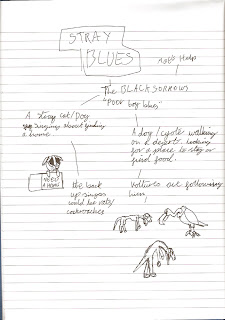 STRAY
BLUES
the BLACK SORROWS
"Poor boy blues"
A stray cat/Dog
singing about finding
a home.
A dog/cyote walking
on a desert looking
for a place to stay or
find food.
NEED
A HOME
the back
up singers
could be rats/
cockroaches
Voltures are following
him